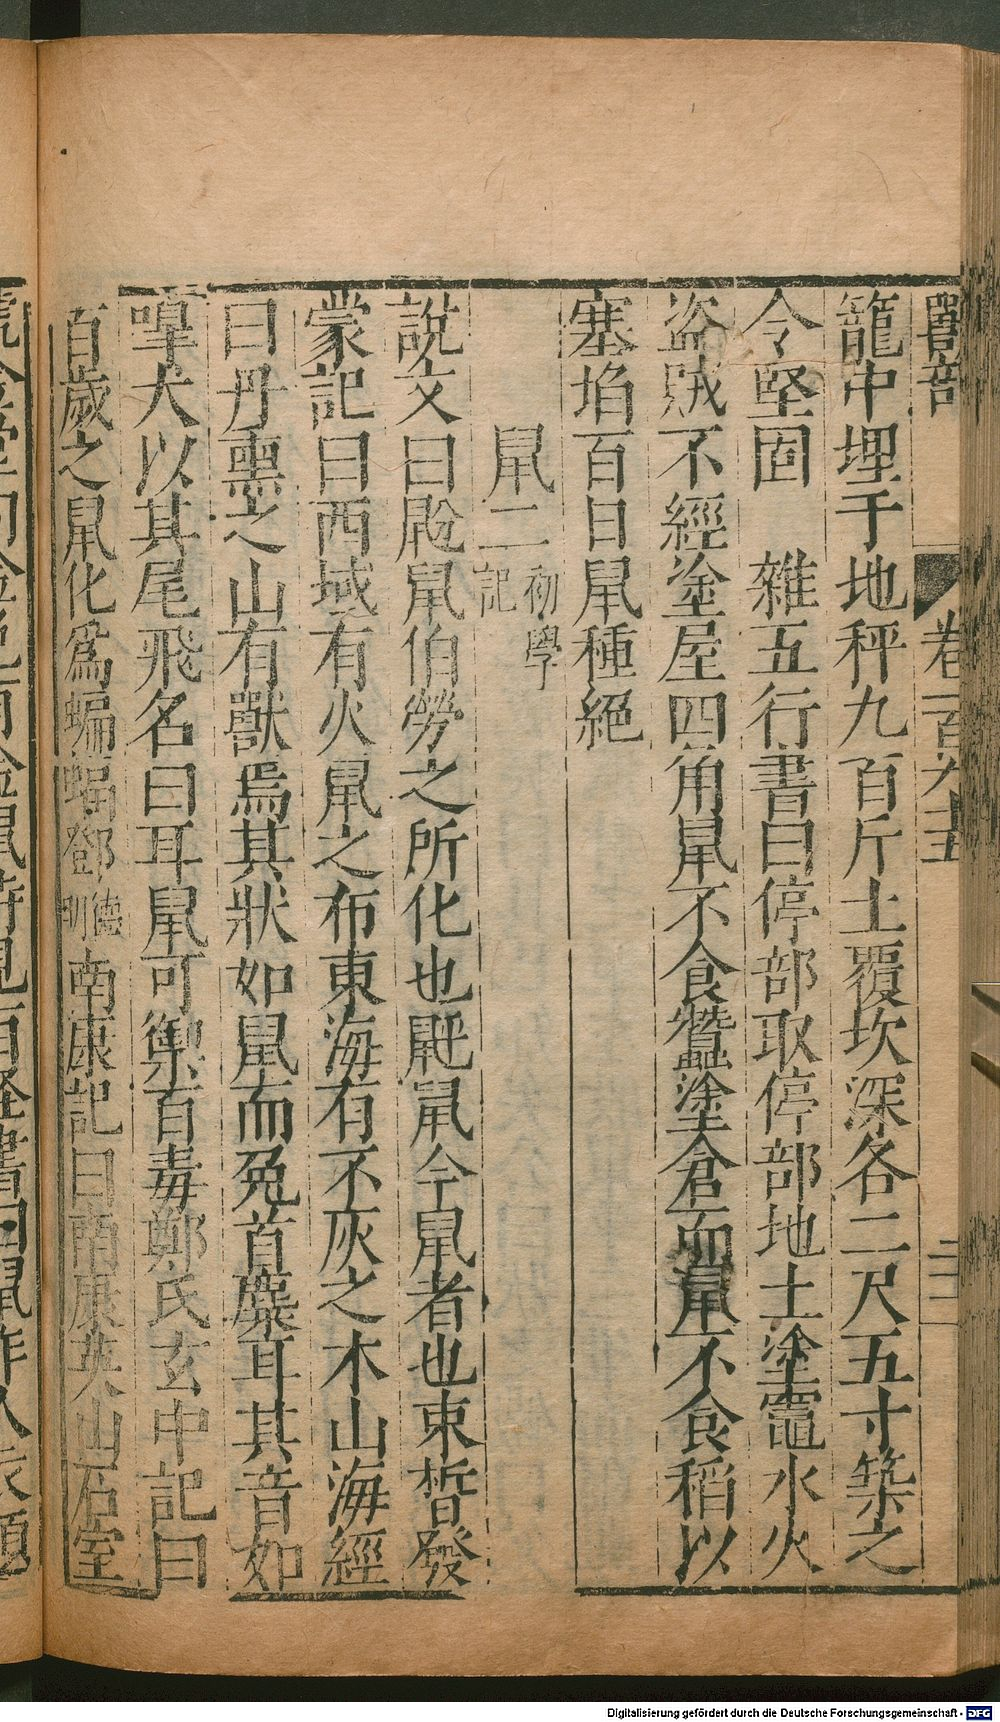 獸部 卷一百九十五 三
籠中埋于地秤九百斤土覆坎深各二尺五寸築之
令堅固 雜五行書曰停部取停部地土塗竈水火
盗賊不經塗屋四角鼠不食蠶塗倉而鼠不食稻以
塞埳百日鼠種絕
鼠二初學記
說文曰鼢鼠伯勞之所化也鼮鼠今鼠者也束晳發
蒙記曰西域有火鼠之布東海有不灰之木山海經
曰丹熏之山有獸焉其狀如鼠而兔首麋耳其音如
嘷犬以其尾飛名曰耳鼠可禦百毒鄭氏玄中記曰
百歲之鼠化爲蝙蝠鄧德明南康記曰南康英山石室
Digitalisierung gefördert durch die Deutsche Forschungsgemeinschaft - DFG